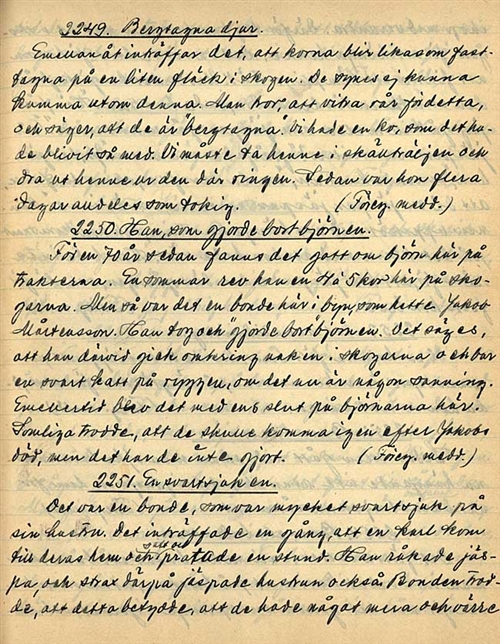 2249. Bergtagna djur.
Emellanåt inträffar det, att korna blir likasom fast-
tagna på en liten fläck i skogen. De synes ej kunna
komma utom denna. Man tror, att vitra rår för detta,
och säger, att de är "bergtagna". Vi hade en ko, som det ha-
de blivit så med. Vi måste ta henne i skäuträljen och
dra ut henne ur den där ringen. Sedan var hon flera
dagar alldeles som tokig. (Föreg. medd.)
2250. Han, som gjorde bort björnen.
För en 70 år sedan fanns det gott om björn här på
trakterna. En sommar rev han en 4 á 5 kor här på sko-
garna. Men så var det en bonde här i byn, som hette Jakob
Mårtensson. Han tog och "gjorde bort björnen. Det säges,
att han därvid gick omkring naken i skogarna och bar
en svart katt på ryggen, om det nu är någon sanning.
Emellertid blev det med ens slut på björnarna här.
Somliga trodde, att de skulle komma igen efter Jakobs
död, men det har de inte gjort. (Föreg. medd.)
2251. En svartsjuk en.
Det var en bonde, som var mycket svartsjuk på
sin hustru. Det inträffade en gång, att en karl kom
till deras hem och satt och pratade en stund. Han råkade jäs-
pa, och strax därpå jäspade hustrun också. Bonden trod-
de, att detta betydde, att de hade något mera och värre